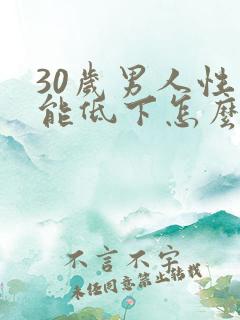 30歲男人性
能低下怎麼
不言不字
未经同意禁止转载